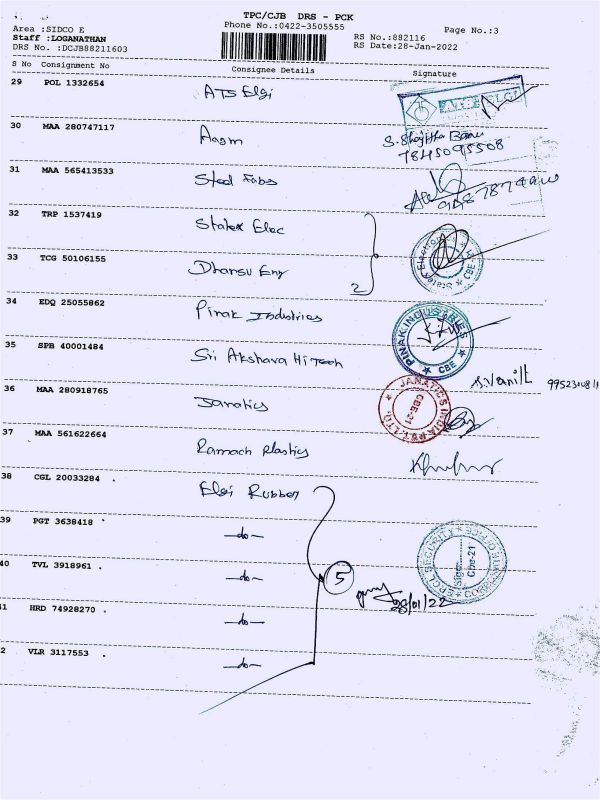 TPC/CJB DRS - PCK
Phone No.:0422-3505555
Page No.:3
Area :SIDCO E
Staff :LOGANATHAN
DRS No. :DCJB88211603
RS No.:882116
RS Date:28-Jan-2022
S No Consignment No Consignee Details Signature
29 POL 1332654 ATS Elgi
30 MAA 280747117 Aasm
S. Shajitha Banu
7845095508
31 MAA 565413533 Steel Fabs
32 TRP 1537419 Statex Elec
33 TCG 50106155 Dhansu Eng
2
34 EDQ 25055862 Pinak Industries
PINAK INDUSTRIES
CBE
35 SPB 40001484 Sri Akshara Hi Tech
S.Vanitt
36 MAA 280918765 Janatics
JANATICS INDIA PVT. LTD.
CBE-21
37 MAA 561622664 Ramach Plastics
38 CGL 20033284 Elgi Rubber
39 PGT 3638418 -do-
40 TVL 3918961 -do-
5
28/01/22
EPCL SECURITY
Sign
Cbe-21
1 HRD 74928270 -do-
2 VLR 3117553 -do-